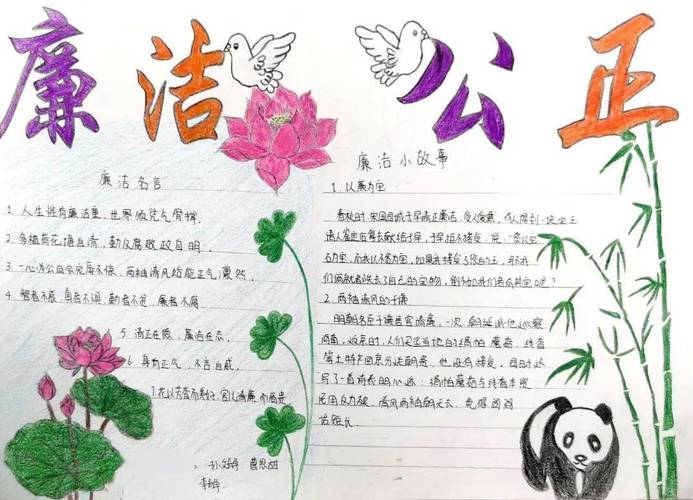 廉洁公正
廉洁名言
1. 人生惟有廉洁重，世界须凭气骨撑。
2. 多植荷花塘自清，勤反腐败政自明。
3. 一心为公自会宠辱不惊，两袖清风始能正气凛然。
4. 智者不惑，勇者不惧，勤者不贫，廉者不腐
5. 清正在德，廉洁在志。
6. 身有正气，不言自威。
7. 花以芳香而美好，官以清廉而高贵
孙 曹思甜
李
廉洁小故事
1. 以廉为宝
春秋时，宋国司城子罕清正廉洁，受人爱戴。有人得到一块宝玉
请人鉴定后拿去献给子罕，子罕拒不接受，说：“您以宝
石为宝，而我以不贪为宝。如果我接受了您的玉，那我
们俩就都失去了自己的宝物，倒不如我们各有其宝呢？
2. 两袖清风的于谦
明朝名臣于谦居官清廉，一次，朝廷派他巡察
河南，返京时，人们买些当地的绢帕、蘑菇、线香
等土特产回京分送朝贵，他没有接受，同时还
写了一首诗表明心迹：绢帕蘑菇与线香，本想
民用反为殃，清风两袖朝天去，免得闾阎
话短长。